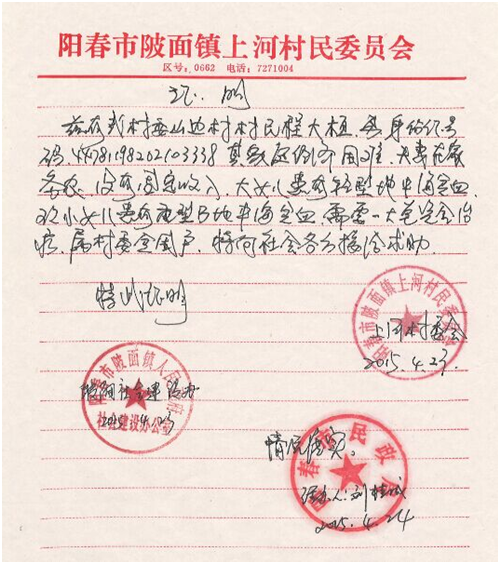 阳春市陂面镇上河村民委员会
区号：0662 电话：7271004
证明
兹有我村委山边村村民程大桓，身份证号
码：441781198202103338 其家庭经济困难，夫妻在家
务农，没有固定收入，大女儿患有轻型地中海贫血，
次小女儿患有重型B地中海贫血，需要一大笔资金治
疗，属村委贫困户，特向社会各界接洽求助。
特此证明
上河村委会
2015.4.23
阳春市陂面镇上河村民委员会
阳春市陂面镇人民政府
社会建设办公室
情况属实。
阳春市民政局
2015.4.24